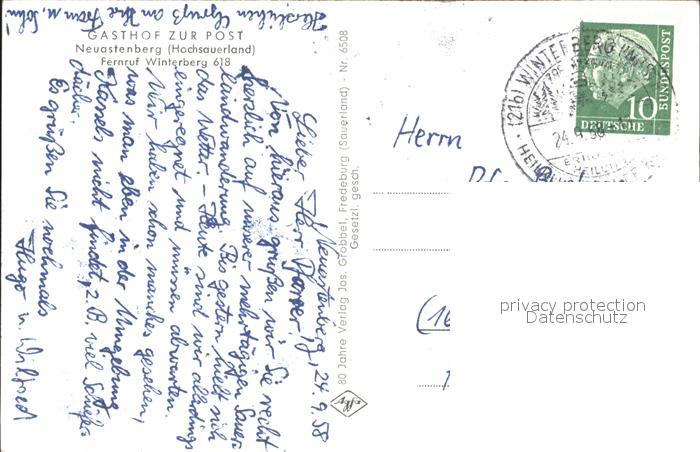 Herzlichen Gruß an Ihre Frau u. Sohn
GASTHOF ZUR POST
Neuastenberg (Hochsauerland)
Fernruf Winterberg 618
Neuastenberg, 24.9.58
Lieber Herr Pfarrer!
Von hieraus grüßen wir Sie recht
herzlich auf unserer mehrtägigen Sauer-
landwanderung. Bis gestern hielt sich
das Wetter – Heute sind wir allerdings
eingeregnet und müssen abwarten.
Wir haben schon manches gesehen,
was man eben in der Umgebung
Kassels nicht findet, z. B. viel Schiefer-
dächer.
Es grüßen Sie nochmals
Hugo u. Wilfried
80 Jahre Verlag Jos. Grobbel, Fredeburg (Sauerland) - Nr. 6508
Gesetzl. gesch.
Herrn
(16
(21b) WINTERBERG
24.9.58
10
DEUTSCHE
BUNDESPOST
privacy protection
Datenschutz